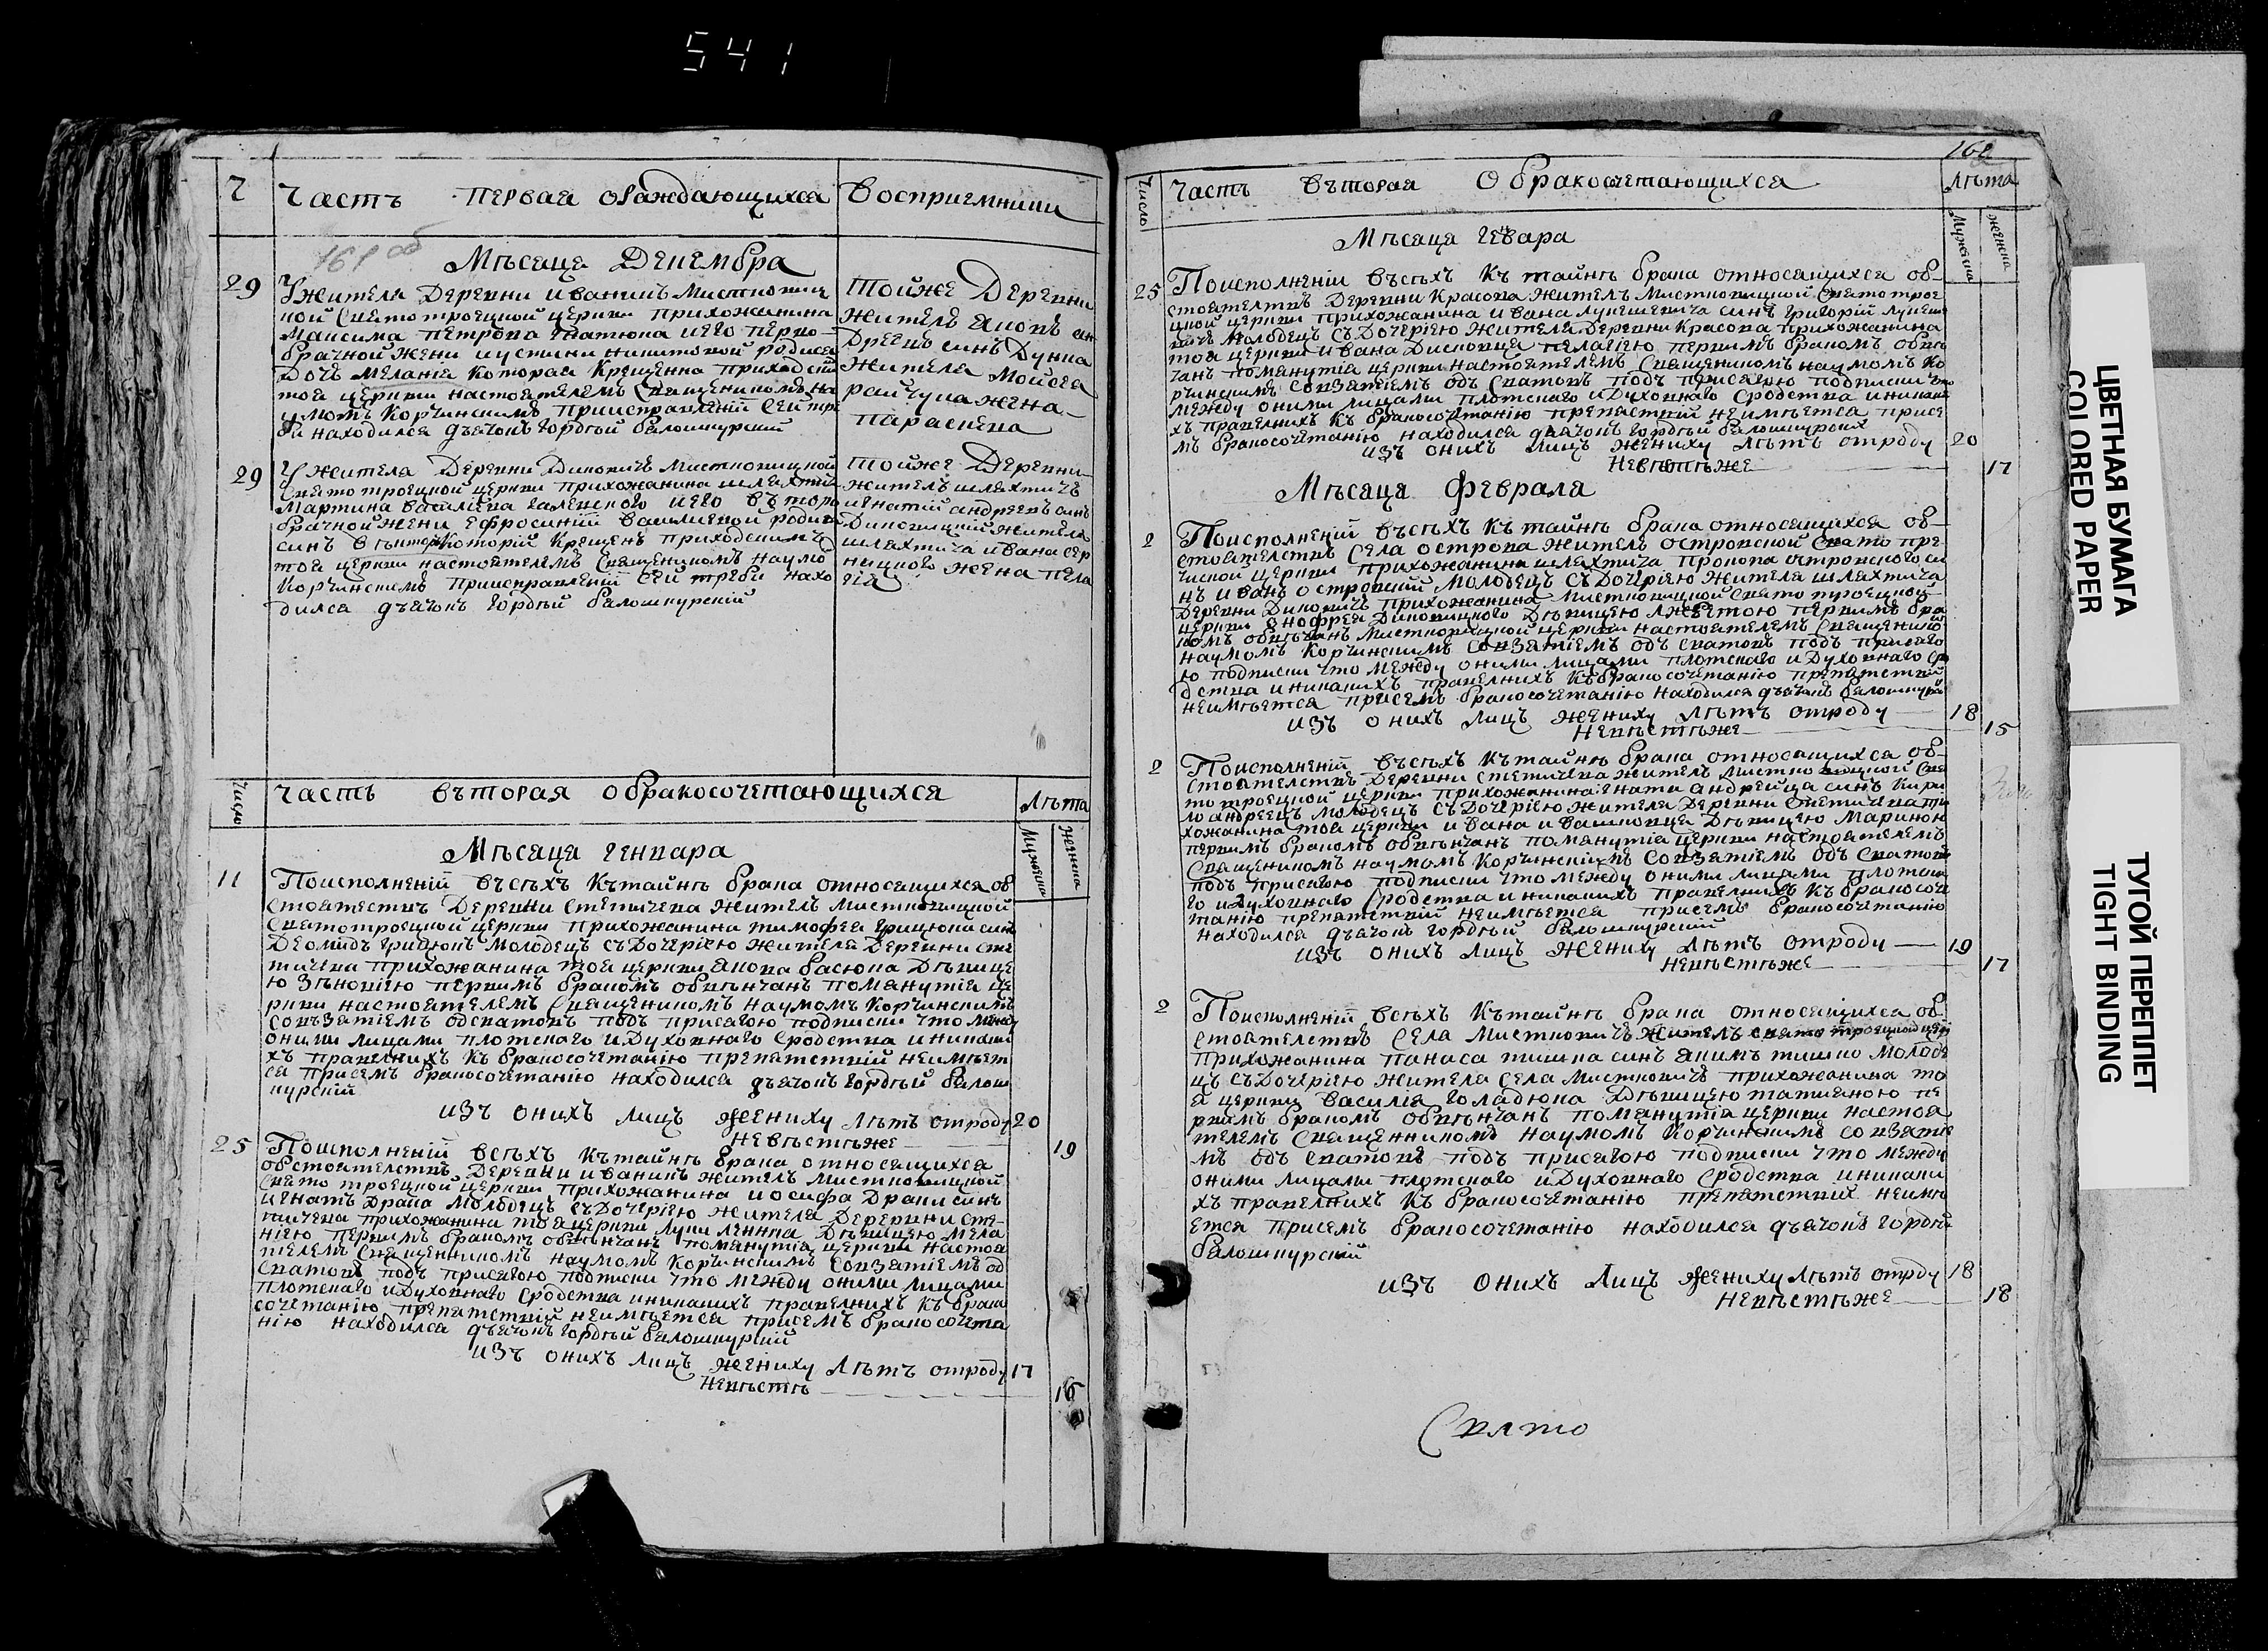 541
7 Частъ первая ораждающихся Восприемники
161 об
Мѣсяца Декембра
29 Ужителя Деревни Иваникъ Мисткович
кой Святотроецкой церкви прихожанина
Максима Петрова Гнатюка иего перво
брачной жени иустини никитовой родися
Дочь Мелания которая крещенна приходским
тоя церкви настоятелемъ Священикомъ на
умомъ Корчинскимъ приисправлений сей тре
би находился дьячокъ Гордѣй Балошкурский
Тойже Деревни
жителъ Яковъ ан
дреевъ синъ Дунка
жителя Мойсея
райчука жена
Параскева
29 У жителя Деревни Диковичъ Мистковицкой
Святотроецкой церкви прихожанина шляхтич
Мартина Василиева иего второ
брачной жени Ефросиний Василиевой родися
синъ Викторъ которій крещенъ приходскимъ
тоя церкви настоятелемъ Священикомъ Наумо
Корчинскимъ приисправлений сей треби нахо
дился дьячокъ Гордѣй Балошкурскій
Тойже Деревни
жителъ шляхтичъ
игнатий андреевъ синъ
Диковицкий жителя
шляхтича ивана сер
ницкого жена пела
гія
Число Частъ въторая обракосочетающихся Лѣта
Мужеска Женска
Мѣсяца Генвара
11 Поисполнений въсѣхъ Кътайнѣ брака относящихся об
стоятество Деревни Стетичева жителъ Мистковицкой
Святотроецкой церкви прихожанина тимофея Грицюка син
Деомидъ Грицюкъ Молодецъ съДочерїею жителя Деревни сте
тичева прихожанина тоя церкви Якова Басюка Дѣвице
ю Зѣновїею первимъ бракомъ обвѣнчанъ поманутія це
ркви настоятелемъ Священикомъ Наумомъ Корчинскимъ
совъзятіемъ одсватовъ подъ присягою подписки что между
оними лицами плотскаго идуховнаго сродства иникаки
хъ правелнихъ къ бракосочетанію препятствий неимѣет
ся присемъ бракосочетанію находился дьячокъ Гордѣй Балош
курский
изъ онихъ лицъ жениху лѣтъ отроду 20
Невѣстѣже 19
25 Поисполнений всѣхъ Кътайнѣ брака относящихся
обстоятелствъ Деревни иваникъ жителъ Мистковицкой
Святотроецкой церкви прихожанина иосифа Драки синъ
игнатъ Драка Молодецъ съДочерїею жителя Деревни сте
тичева прихожанина тоя церкви Луки Дѣвицею Мела
ніею первимъ бракомъ обвѣнчанъ поманутія церкви настоя
телемъ Священникомъ Наумомъ Корчинскимъ совзятіемъ од
сватовъ подъ присягою подписки что между оними лицами
плотскаго идуховнаго сродства иникакихъ правелнихъ къ брако
сочетанію препятствий неимѣется присемъ бракосочета
нію находился дьячокъ Гордѣй Балошкурский
изъ онихъ лицъ жениху лѣтъ отроду 17
Невѣстѣ 16
162
Число Частъ въторая Обракосочетающихся Лѣта
Мужеска женска
Мѣсяца Генвара
25 Поисполнений въсѣхъ Къ тайнѣ брака относящихся об
стоятелствъ Деревни Красова жителъ Мистковицкой Святотрое
цкой церкви прихожанина ивана синъ Григорій
Молодецъ съДочерїею жителя Деревни Красова прихожанина
тоя церкви ивана пелагією первимъ бракомъ обвѣн
чанъ поманутія церкви настоятелемъ Священикомъ наумомъ Ко
рчинскимъ совзятіемъ одъ сватовъ подъ присягою подписки что
между оними лицами плотскаго идуховнаго сродства иникаки
хъ правелнихъ къ бракосочетанію препятствий неимѣется присе
мъ бракосочетанію находился дьячокъ Гордѣй Балошкурский
изъ онихъ лицъ жениху лѣтъ отроду 20
Невѣстѣже 17
Мѣсяца Февраля
2 Поисполнений въсѣхъ Къ тайнѣ брака относящихся об
стоятелствъ села острова жителъ островской Свято пре
чиской церкви прихожанина шляхтича Прокопа островского си
нъ иванъ островский Молодецъ съДочерїею жителя шляхтича
Деревни Диковичъ прихожанина Мистковицкой Святотроецкой
церкви Онофрея Диковицкого Дѣвицею первимъ бра
комъ обвѣнчанъ Мистковицкой церкви настоятелемъ Священико
Наумомъ Корчинскимъ совзятіемъ одъ сватовъ подъ присяго
ю подписки что между оними лицами плотскаго идуховнаго ср
одства иникакихъ правелнихъ къбракосочетанію препятствий
неимѣется присемъ бракосочетанію находился дьячокъ Балошкурс
изъ онихъ лицъ жениху лѣтъ отроду 18
Невѣстѣже 15
2 Поисполнений въсѣхъ Кътайнѣ брака относящихся об
стоятелствъ Деревни стетичева жителъ Мистковицкой Свя
тотроецкой церкви прихожанина игната андрейца синъ Кири
ло андреецъ Молодецъ съДочерїею жителя Деревни Стетичева при
хожанина тоя церкви ивана Дѣвицею Мариною
первимъ бракомъ обвѣнчанъ поманутія церкви настоятелемъ
Священикомъ наумомъ Корчинскимъ совзятіемъ одъ сватовъ
подъ присягою подписки что между оними лицами плотска
го идуховнаго сродства иникакихъ правелнихъ къ бракосоче
танію препятствий неимѣется присемъ бракосочетанію
находился дьячокъ Гордѣй Балошкурский
изъ онихъ лицъ жениху лѣтъ отроду 19
Невѣстѣже 17
2 Поисполнений всѣхъ Кътайнѣ брака относящихся об
стоятелствъ села Мистковичъ жителъ свято троецкой церк
прихожанина панаса тишка синъ якимъ тишко молоде
цъ съДочерїею жителя села Мистковичъ прихожанина то
я церкви Василія Голадюка Дѣвицею татияною пе
рвимъ бракомъ обвѣнчанъ поманутія церкви настоя
телемъ Священникомъ Наумомъ Корчинскимъ совзятіе
мъ одъ сватовъ подъ присягою подписки что между
оними лицами плотскаго идуховнаго сродства иникаки
хъ правелнихъ къ бракосочетанію препятствий неимѣ
ется присемъ бракосочетанію находился дьячокъ Гордѣй
Балошкурский
изъ онихъ лицъ жениху лѣтъ отрду 18
Невѣстѣже 18
Свято
ЦВЕТНАЯ БУМАГА
COLORED PAPER
ТУГОЙ ПЕРЕПЛЕТ
TIGHT BINDING